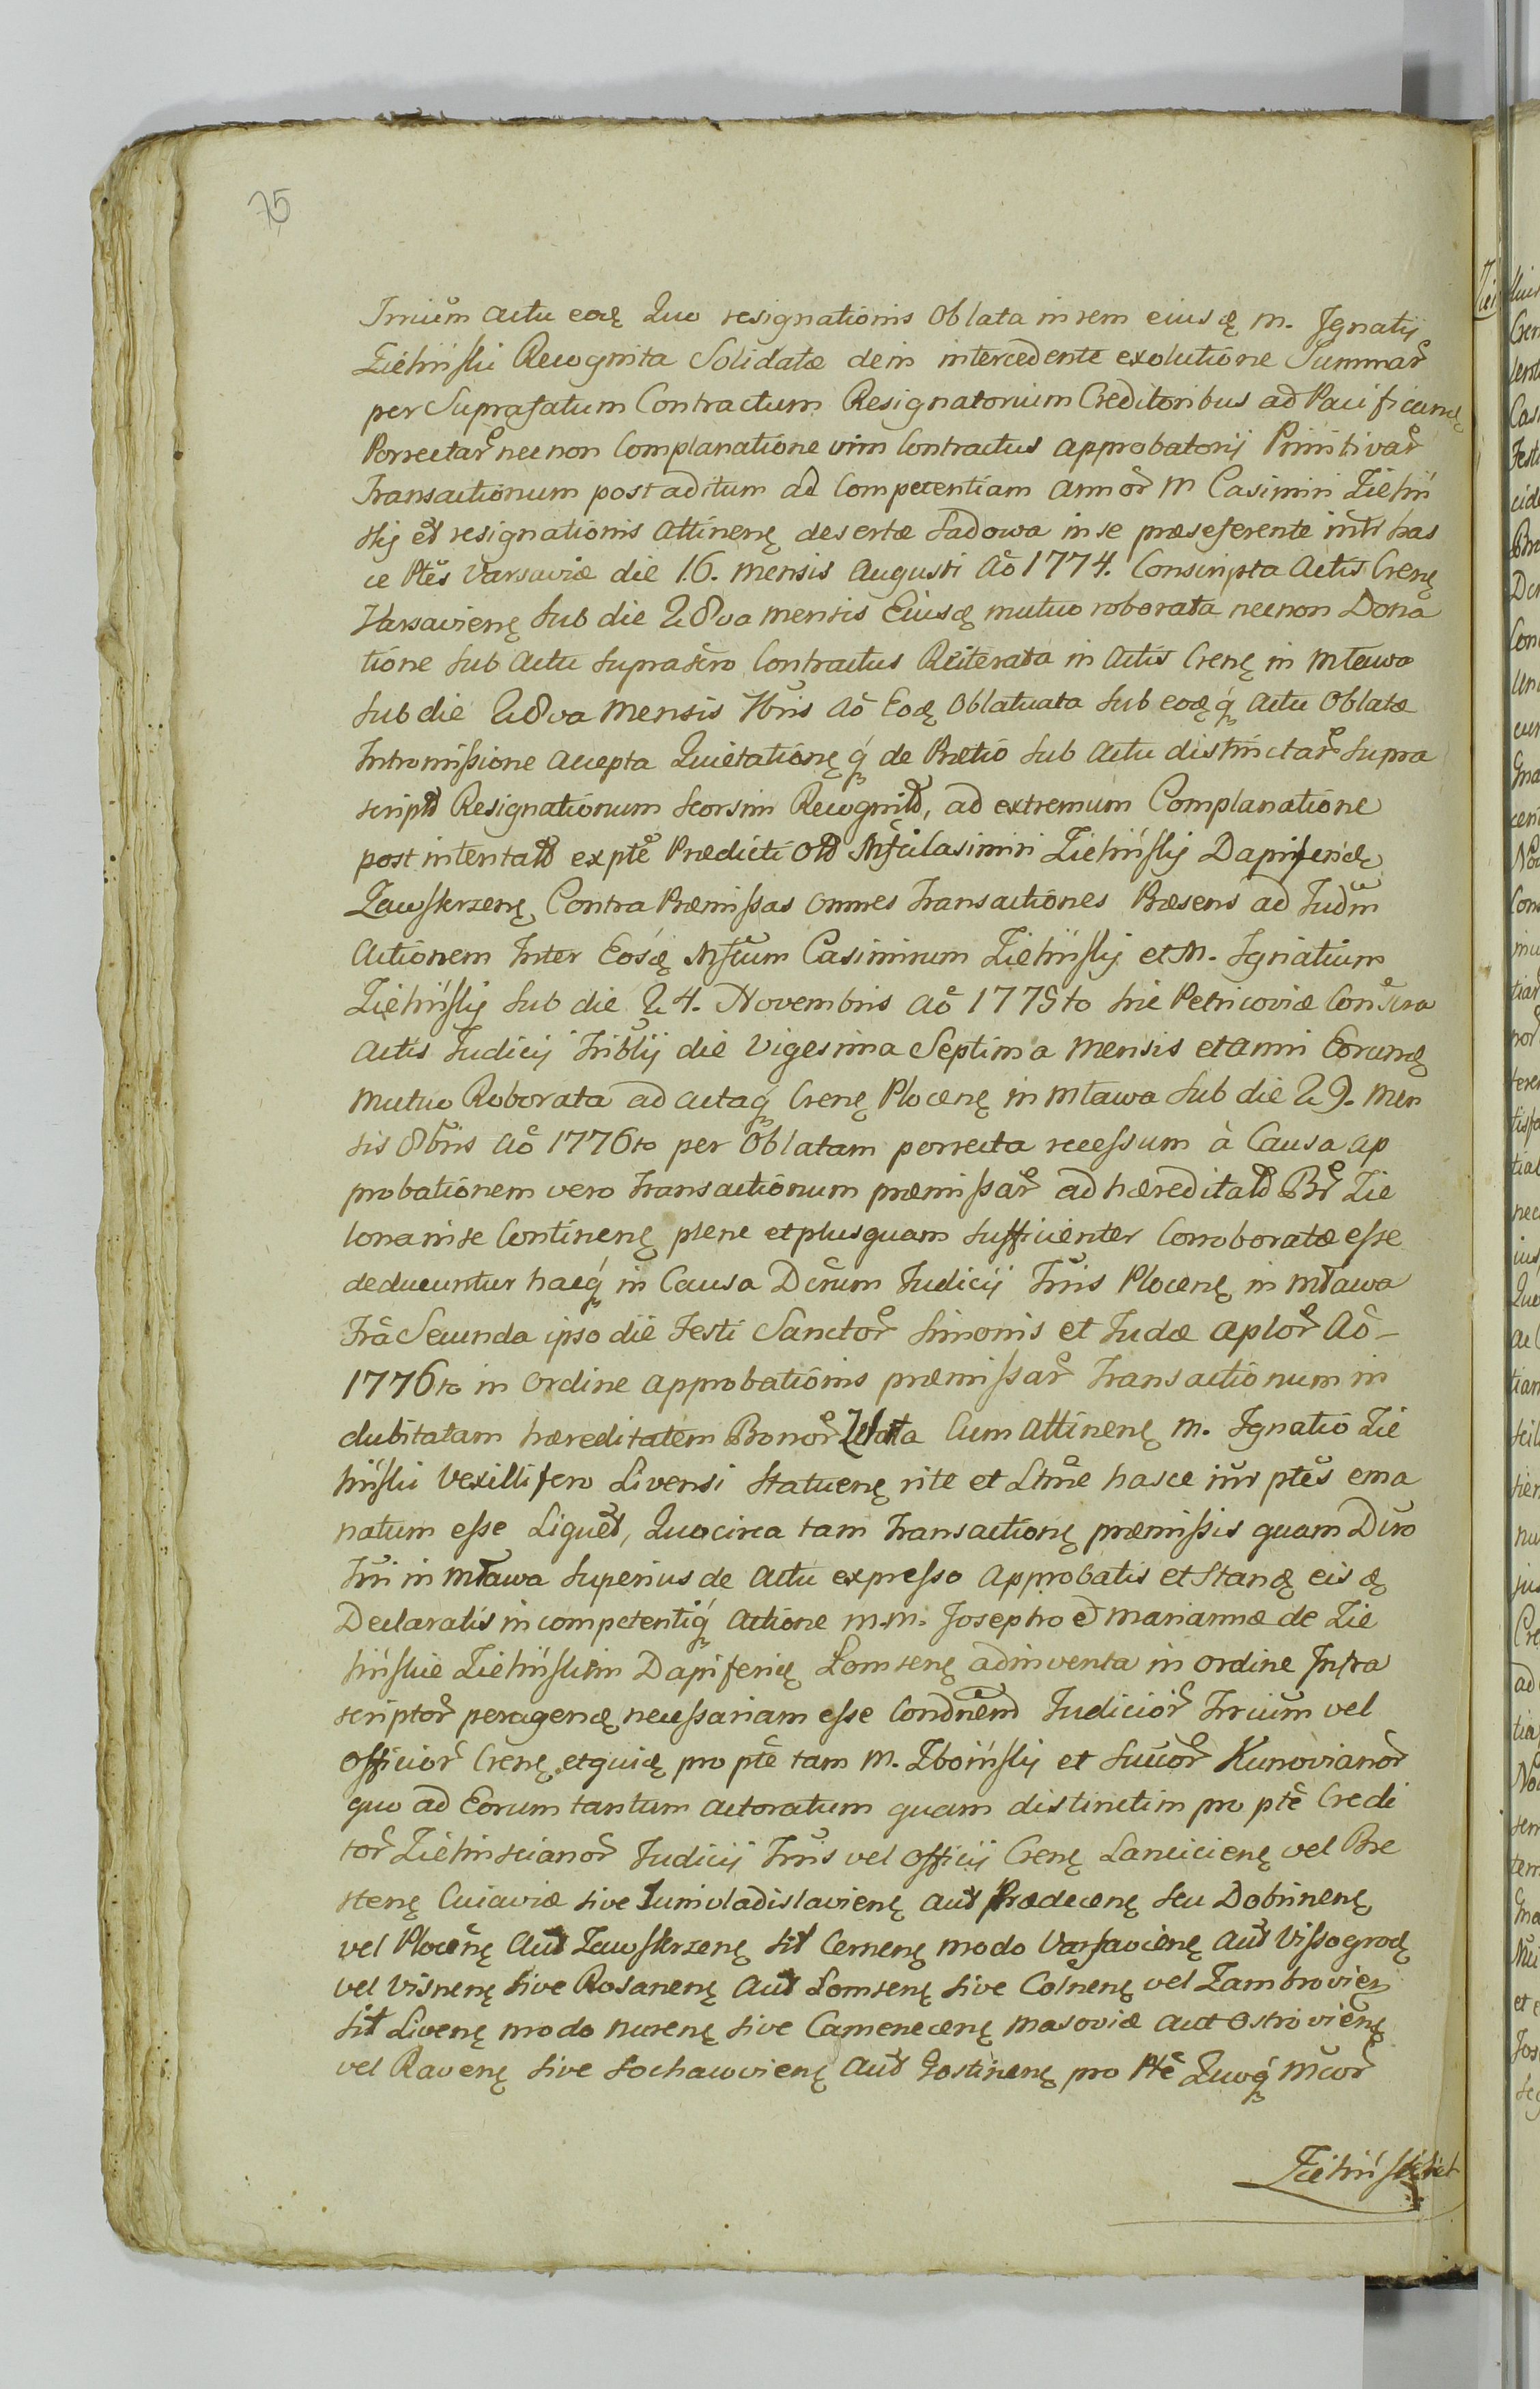 75
Trrium actu eodę Quo resignationis oblata in rem eiusdę M. Ignatij
Zielińskii Recognita Solidatæ dein intercedente exolutione Summar̃
per Suprafatum Contractum Resignatorium Creditoribus ad Pacificandę
Porrectar̃ necnon Complanatione vim Contractus approbatorij Primitivar̃
Transactionum post aditum ad Competentiam annor̃ M Casimiri Zieliń
skij et resignationis attinenę desertæ Sadowa in se præseferente intr has
ce Ptes Varsaviæ die 16. mensis Augusti Ao 1774. Conscripta Actis Crenę
Varsavienę Sub die 28va mensis Eiusdę mutuo roborata necnon Dona
tione sub Actu suprascro Contractus Reiterata in Actis Crenę in Mławo
Sub die 28va Mensis 7bris Ao Eodę Oblatuata sub eodęq́ Actu Oblatæ
Intromissione accepta Quietationęq́ de Prætio sub Actu distinctar̃ supra
script Resignationum seorsim Recognit, ad extremum Complanatione
post intentat ex pte Prædicti olt Mfci Casimiri Zielińskij Dapiferidę
Zawskrzenę Contra Præmissas omnes Transactiones Præsens ad Judm
Actionem Inter Eosdę Mfcum Casimirum Zielińskij et M. Ignatium
Zielińskij sub die 24. Novembris Ao 1775to hic Petricoviæ Conscra
Actis Judicij Triblij die Vigesima Septima Mensis et anni Eorundę
Mutuo Roborata ad actaq́ Crenę Plocenę in Mława sub die 29. Men
sis 8bris Ao 1776to per Oblatam porrecta recessum à Causa ap
probationem vero Transactionum præmissar̃ ad hæreditat Br̃ Zie
lona in se Continenę plene et plusquam sufficienter Corroboratæ esse
deducuntur hacq́ in Causa Dcrum Judicij Trris Plocenę in Mława
Fra Secunda ipso die Festi Sanctor̃ Simonis et Judæ Aplor̃ Ao –
1776to in Ordine approbationis præmissar̃ Transactionum in
dubitatam hæreditatem Bonor̃ Cum attinenę M. Ignatio Zie
lińskii Vexillifero Livensi Statuenę rite et Ltme hasce intr ptes ema
natum esse Liquet, Quocirca tam Transactionę præmissis quam Dcro
Trri in Mława Superius de Actu expresso Approbatis et Standę eisdę
Declaratis in competentiq́ Actione M.M. Josepho et Mariannæ de Zie
lińskie Zielińskim Dapiferię Lomzenę adinventa in ordine Infra
scriptor̃ peragendę necessariam esse Condnem Judicior̃ Trrium vel
Officior̃ Crenę et quidę pro pte tam M. Zboińskij et Succor̃ Kunovianor̃
quo ad Eorum tantum actoratum quam distinctim pro pte Credi
tor̃ Zielinscianor̃ Judicij Trris vel Officij Crenę Lancicienę vel Bre
stenę Cuiaviæ sive Junivladislavienę aut Prædecenę seu Dobrinenę
vel Plocenę Aut Zawskrzenę sit Cernenę modo Varsavienę Aut Vissogrodę
vel Visnenę sive Rosanenę Aut Lomzenę sive Colnenę vel Zambrovien
Sit Livenę modo Nurenę sive Camenecenę Masoviæ aut Ostrovienę
vel Ravenę sive Sochawvienę Aut Gostinenę pro Pte Quoq́ Mcor̃